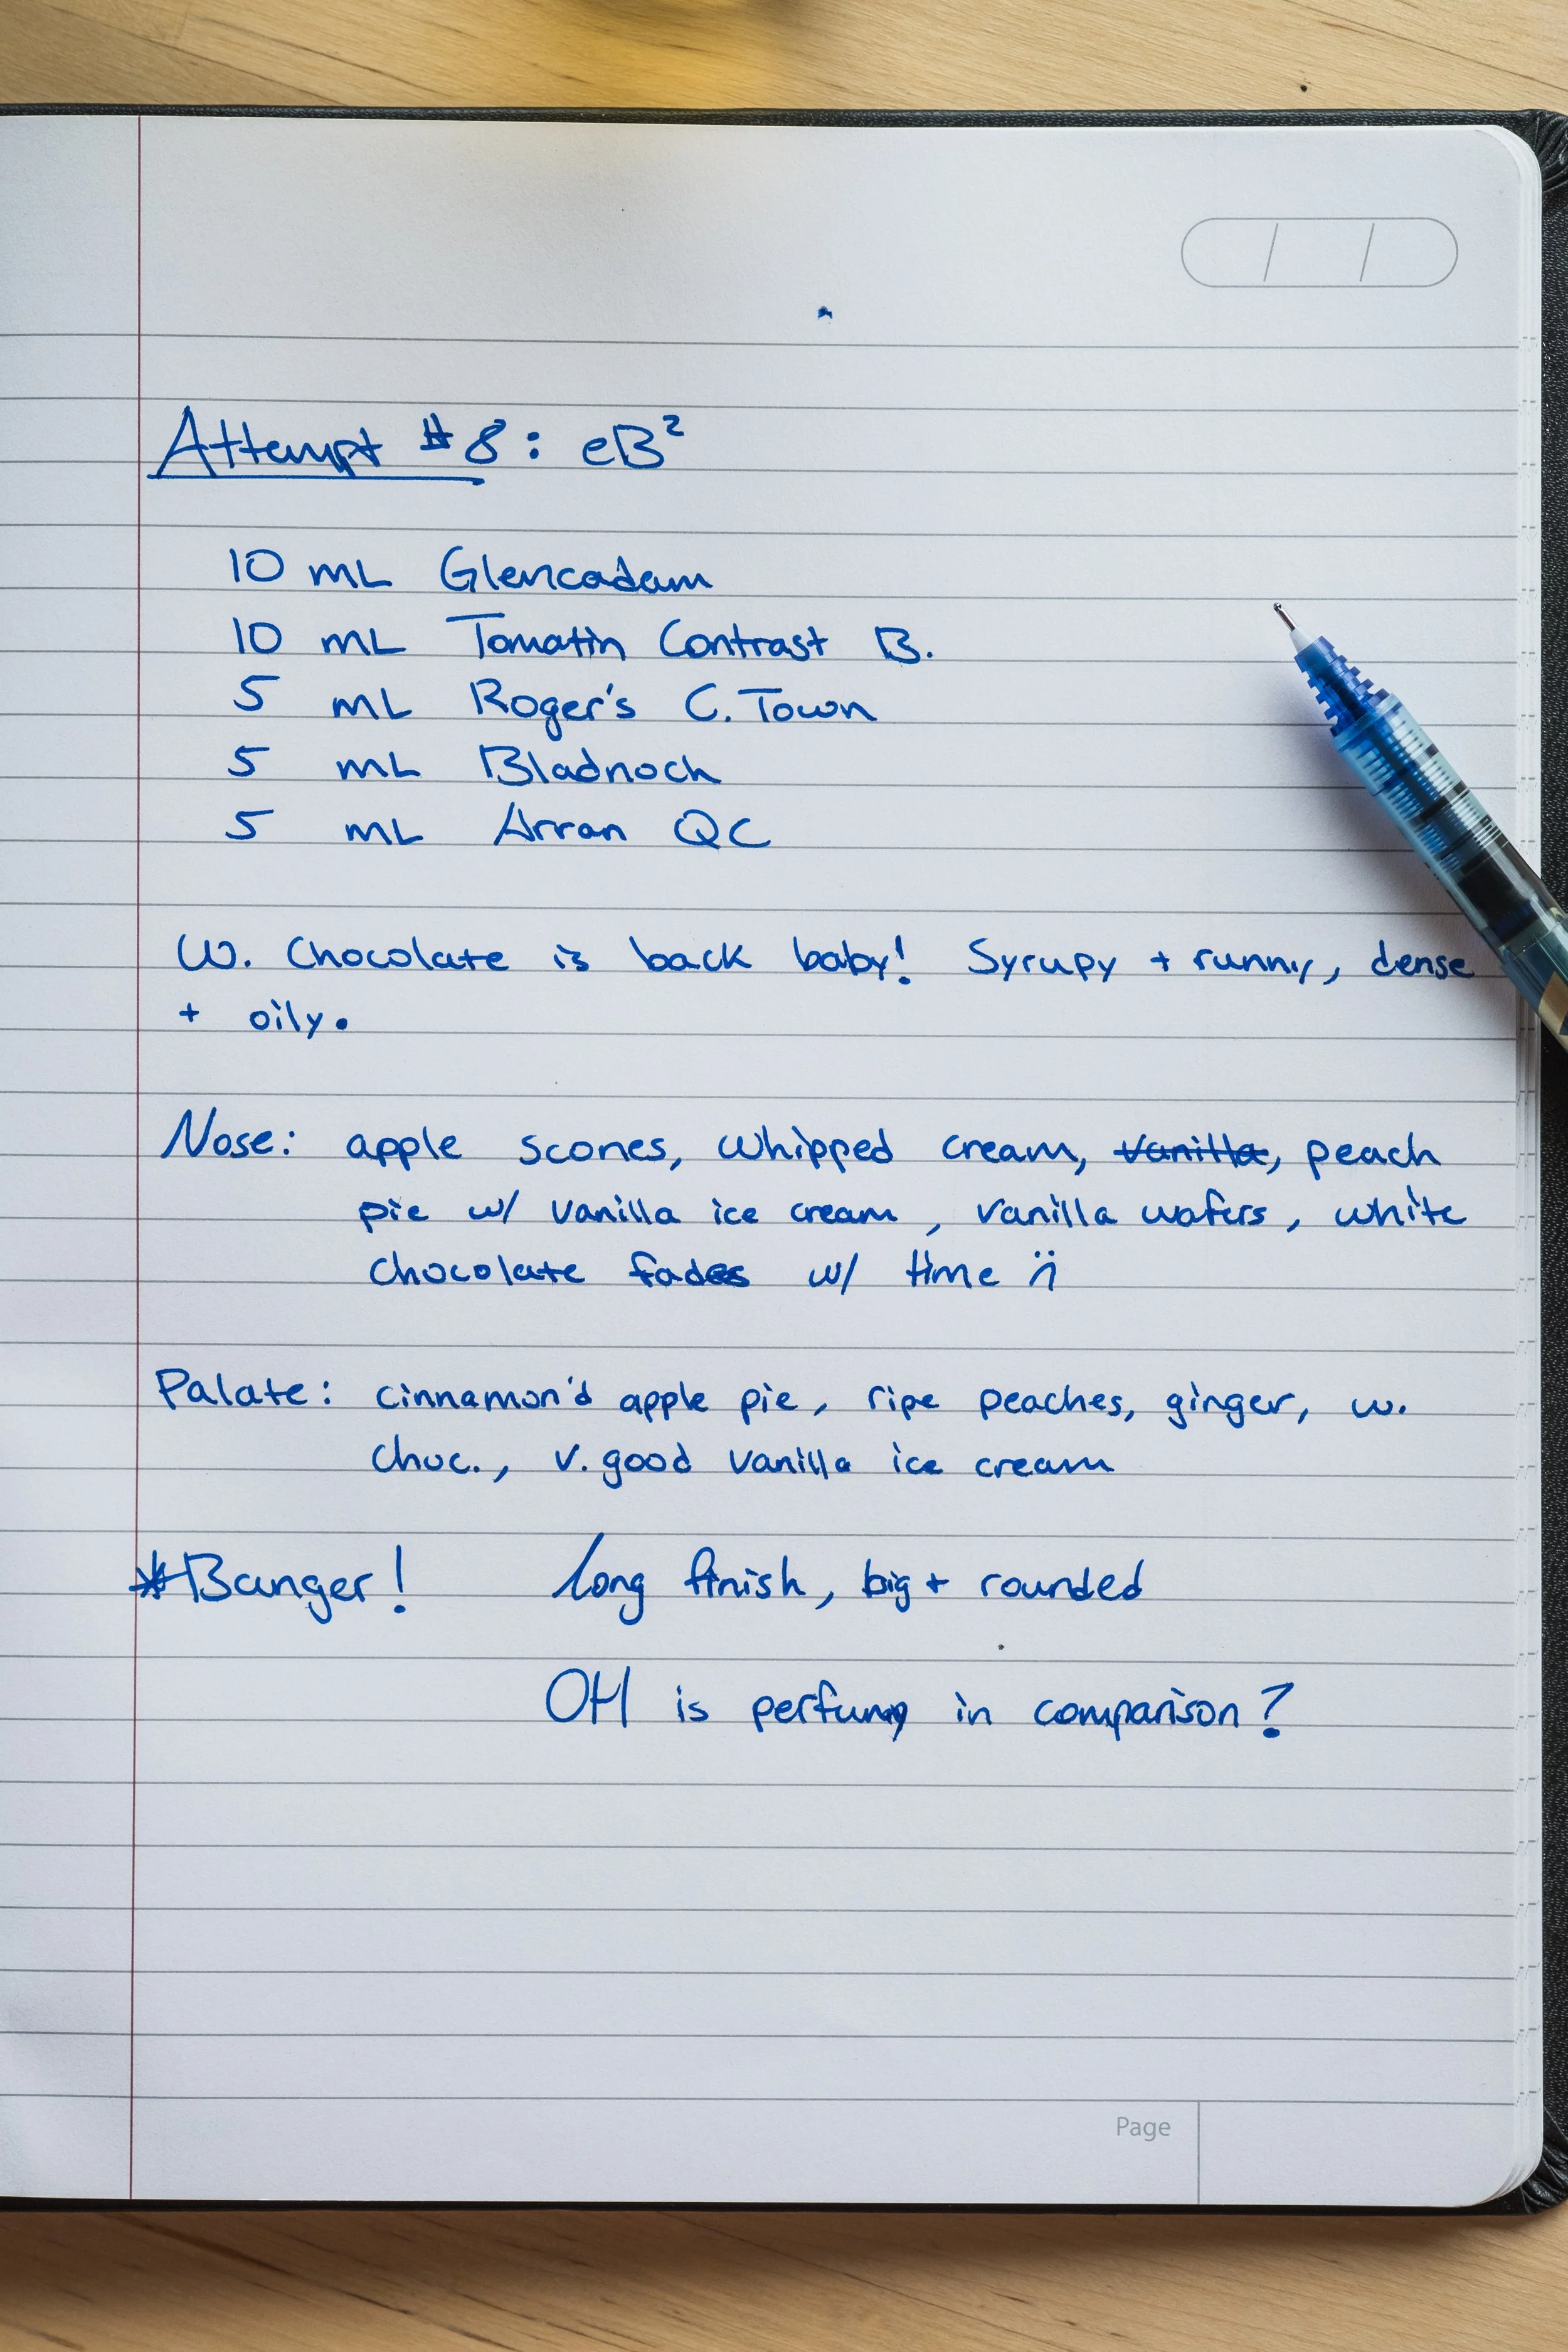 Attempt #8: eB²
10 mL Glencadam
10 mL Tomatin Contrast B.
5 mL Roger's C. Town
5 mL Bladnoch
5 mL Arran QC
W. Chocolate is back baby! Syrupy + runny, dense
+ oily.
Nose: apple scones, whipped cream, vanilla, peach
pie w/ vanilla ice cream, vanilla wafers, white
chocolate fades w/ time :(
Palate: cinnamon'd apple pie, ripe peaches, ginger, w.
choc., v. good vanilla ice cream
*Banger! long finish, big + rounded
OH is perfumy in comparison?
Page